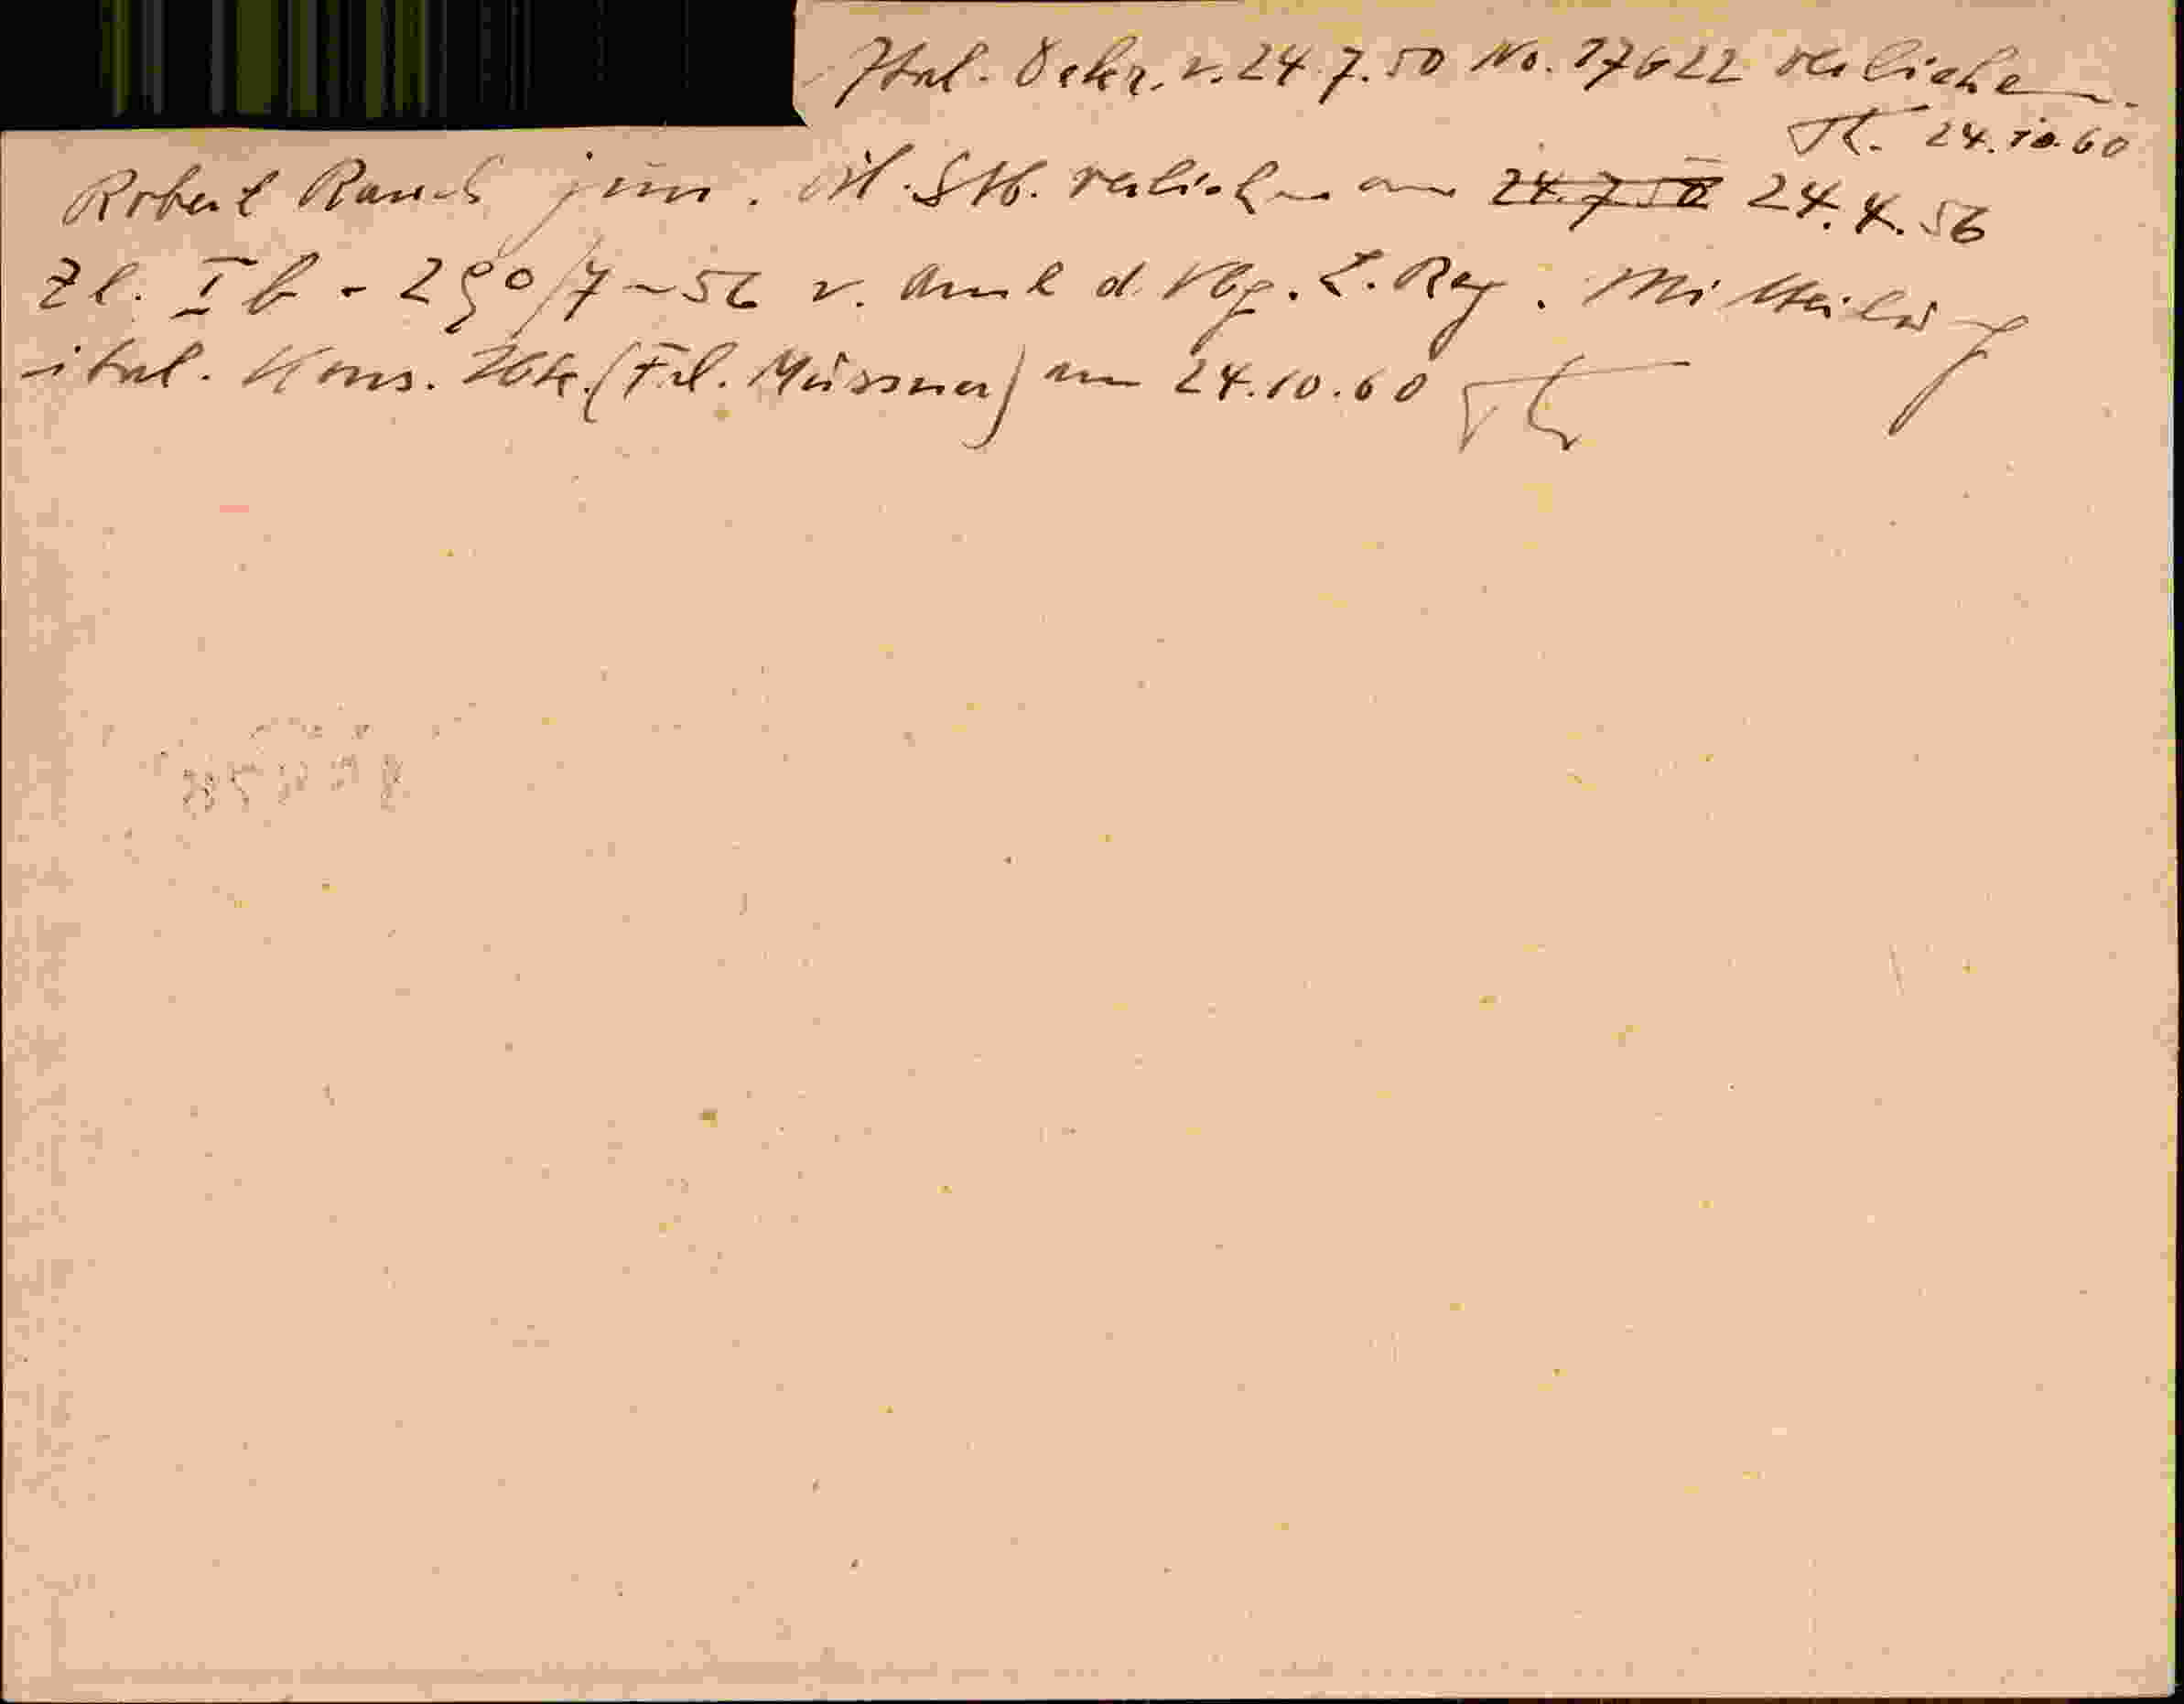 Ital. Dekr. v. 24.7.50 No. 17622 verliehen.
24.10.60
Robert Rauch jun. öst. Stb. verliehen am 24.7.50 24.4.56
Zl. Ib - 290/7-56 v. Amt d. Vbg. L. Reg. Mitteilung
ital. Kons. (Frl. Müssner) am 24.10.60